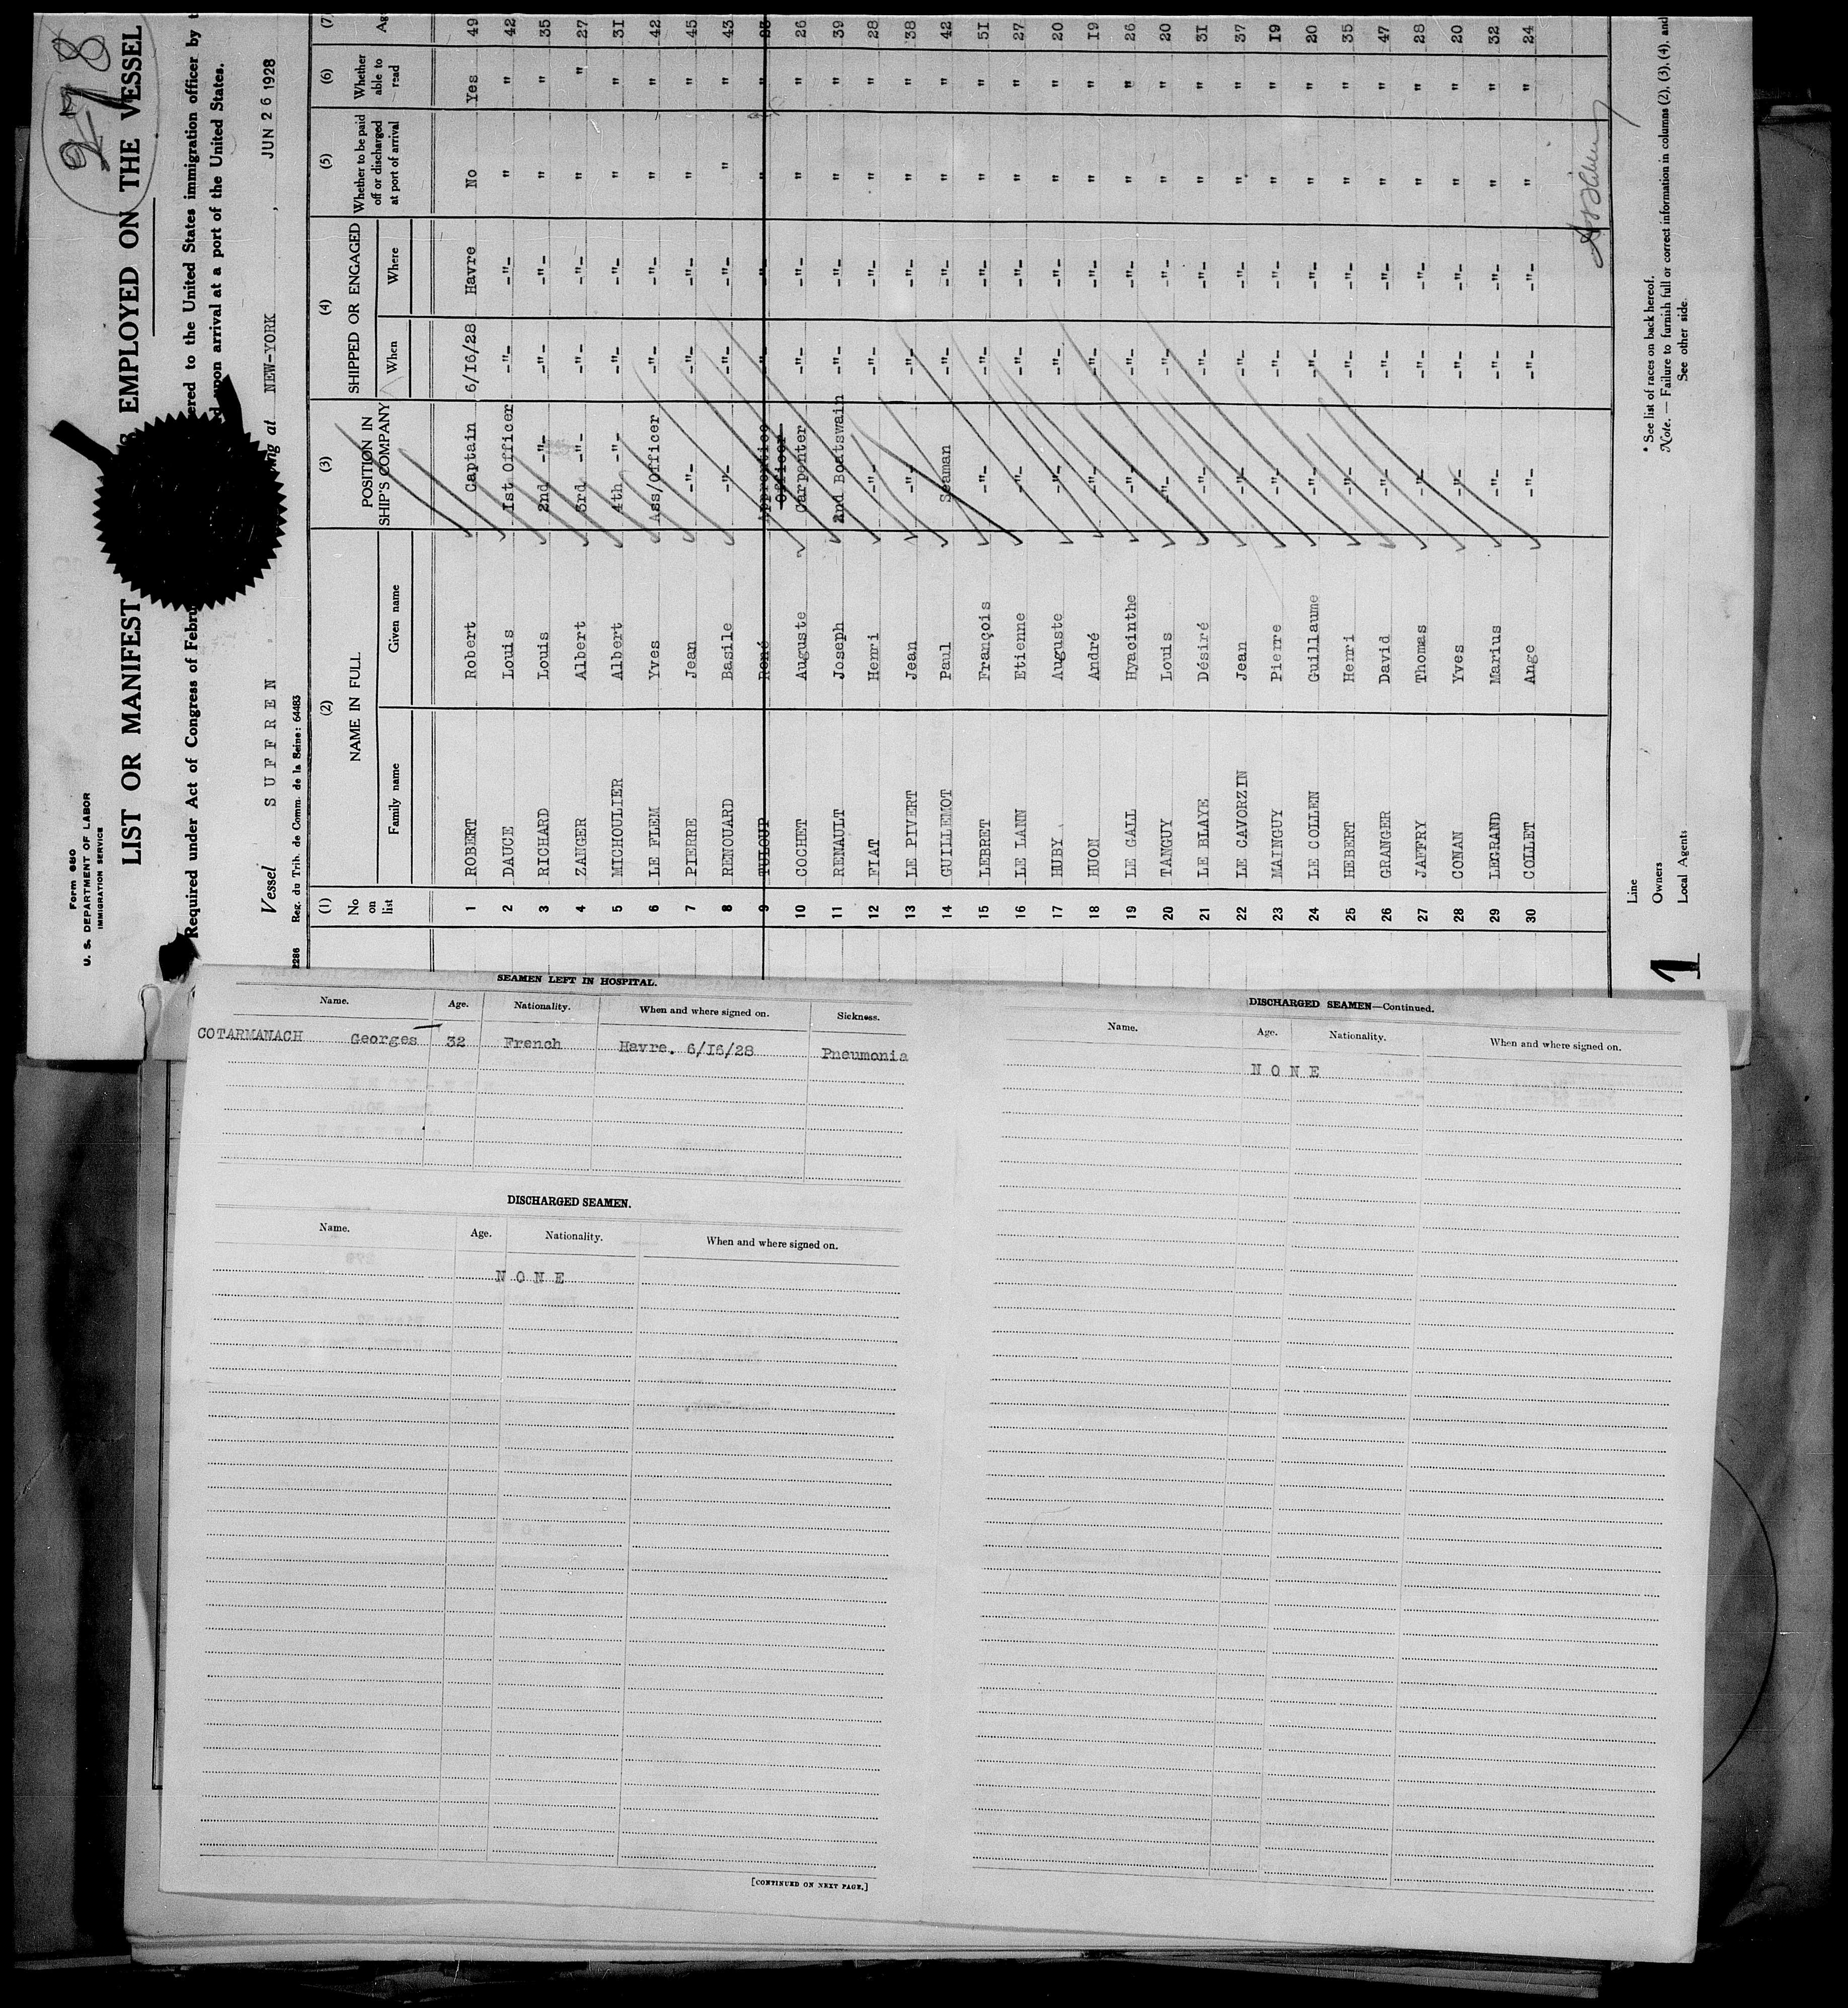 278
Form 680
U. S. DEPARTMENT OF LABOR
IMMIGRATION SERVICE
LIST OR MANIFEST EMPLOYED ON THE VESSEL
Required under Act of Congress of Febru ered to the United States immigration officer by t
upon arrival at a port of the United States.
Vessel SUFFREN ing at NEW-YORK, JUN 26 1928
2286 Reg. du Trib. de Comm. de la Seine: 64483
(1) (2) (3) (4) (5) (6) (7)
No on list NAME IN FULL POSITION IN SHIP'S COMPANY SHIPPED OR ENGAGED Whether to be paid off or discharged at port of arrival Whether able to read Ag
Family name Given name When Where
1 ROBERT Robert Captain 6/16/28 Havre No Yes 49
2 DAUCE Louis 1st Officer -"- -"- " " 42
3 RICHARD Louis 2nd -"- -"- -"- " " 35
4 ZANGER Albert 3rd -"- -"- -"- " " 27
5 MICHOULIER Albert 4th -"- -"- -"- " " 31
6 LE FLEM Yves Ass/Officer -"- -"- " " 42
7 PIERRE Jean -"- -"- -"- " " 45
8 RENOUARD Basile -"- -"- -"- " " 43
9 TULOUP René Apprentice Officer -"- -"- " "
10 COCHET Auguste Carpenter -"- -"- " " 26
11 RENAULT Joseph 2nd Boatswain -"- -"- " " 39
12 FIAT Henri -"- -"- -"- " " 28
13 LE PIVERT Jean -"- -"- -"- " " 38
14 GUILLEMOT Paul Seaman -"- -"- " " 42
15 LEBRET François -"- -"- -"- " " 51
16 LE LANN Etienne -"- -"- -"- " " 27
17 HUBY Auguste -"- -"- -"- " " 20
18 HUON André -"- -"- -"- " " 19
19 LE GALL Hyacinthe -"- -"- -"- " " 26
20 TANGUY Louis -"- -"- -"- " " 20
21 LE BLAYE Désiré -"- -"- -"- " " 31
22 LE CAVORZIN Jean -"- -"- -"- " " 37
23 MAINGUY Pierre -"- -"- -"- " " 19
24 LE COLLEN Guillaume -"- -"- -"- " " 20
25 HEBERT Henri -"- -"- -"- " " 35
26 GRANGER David -"- -"- -"- " " 47
27 JAFFRY Thomas -"- -"- -"- " " 28
28 CONAN Yves -"- -"- -"- " " 20
29 LEGRAND Marius -"- -"- -"- " " 32
30 COLLET Ange -"- -"- -"- " " 24
Line
Owners
Local Agents
* See list of races on back hereof.
Note. — Failure to furnish full or correct information in columns (2), (3), (4), and
See other side.
1
SEAMEN LEFT IN HOSPITAL.
Name. Age. Nationality. When and where signed on. Sickness.
COTARMANACH Georges 32 French Havre. 6/16/28 Pneumonia
DISCHARGED SEAMEN.
Name. Age. Nationality. When and where signed on.
NONE
[CONTINUED ON NEXT PAGE.]
DISCHARGED SEAMEN—Continued.
Name. Age. Nationality. When and where signed on.
NONE